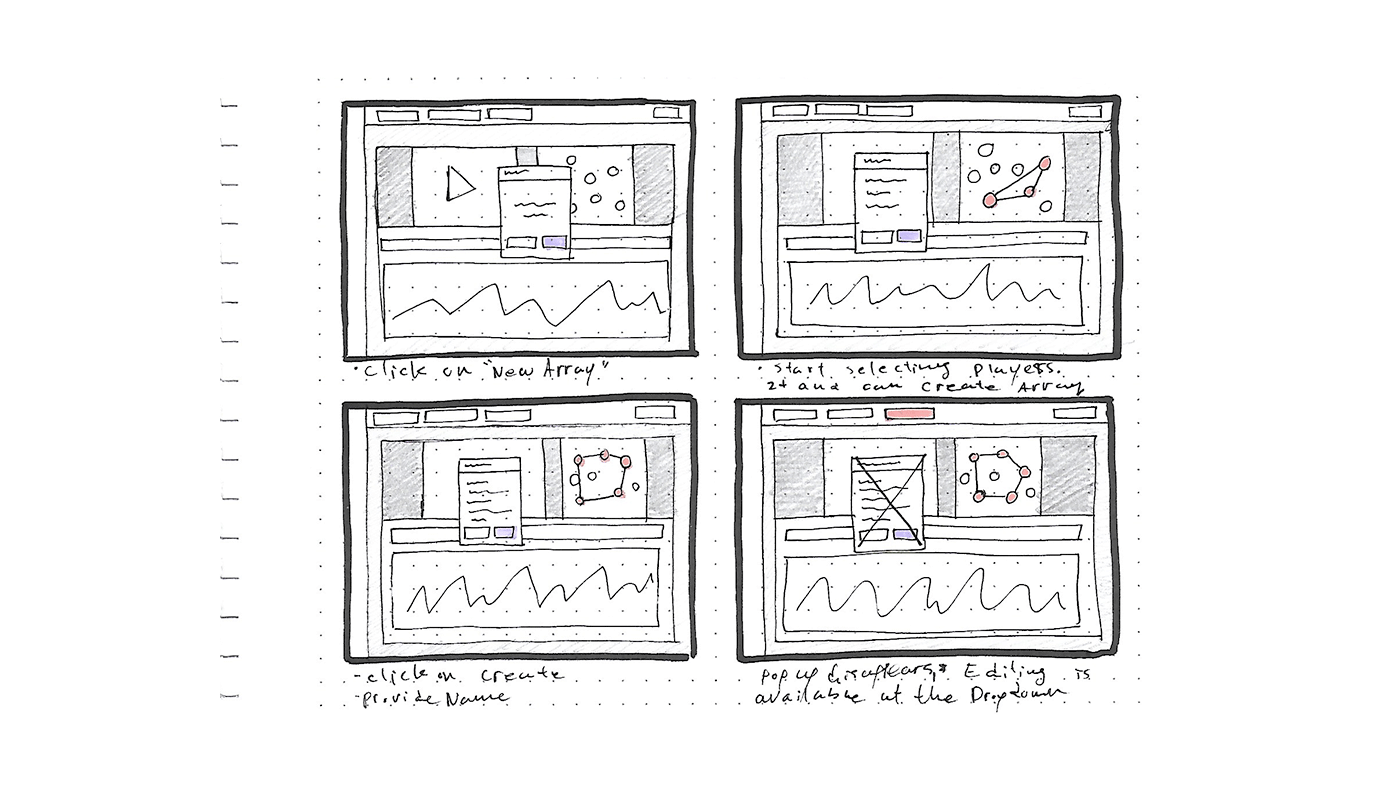 ·Click on "New Array"
· Start selecting players.
2+ and can create Array
-click on create
-provide Name
pop up disappears, Editing is
available at the Dropdown